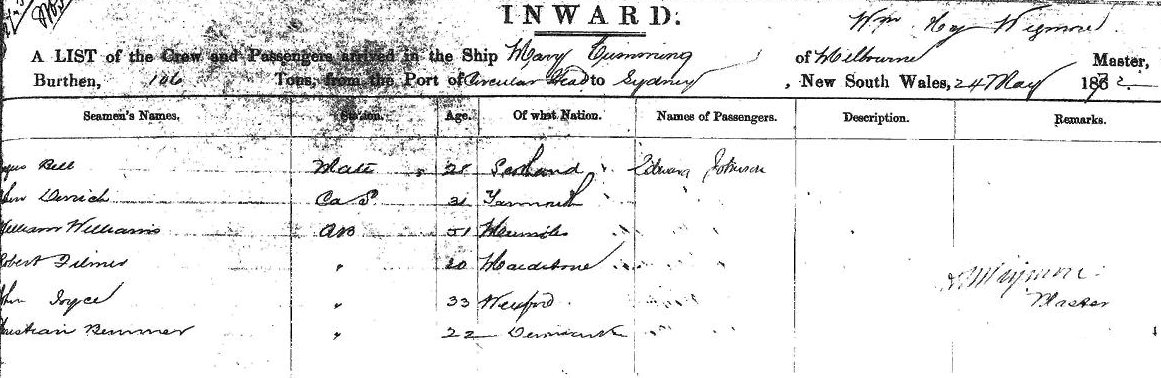 INWARD.
Wm Hay Wigmore
A LIST of the Crew and Passengers arrived in the Ship Mary Cumming of Melbourne Master,
Burthen, 106 Tons, from the Port of Circular Head to Sydney, New South Wales, 24 May 1872.
Seamen's Names. Station. Age. Of what Nation. Names of Passengers. Description. Remarks.
Bell Mate 28 Scotland Edward Johnson
31 Yarmouth
William Williams AB 51
Robert Filmer " 20 Maidstone
John Joyce " 33 Wexford
" 22 Denmark
Master